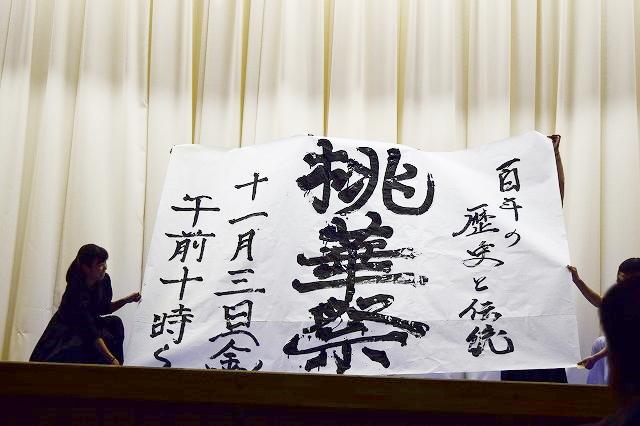 百年の
歴史と伝統
桃華祭
十一月三日(金
午前十時〜